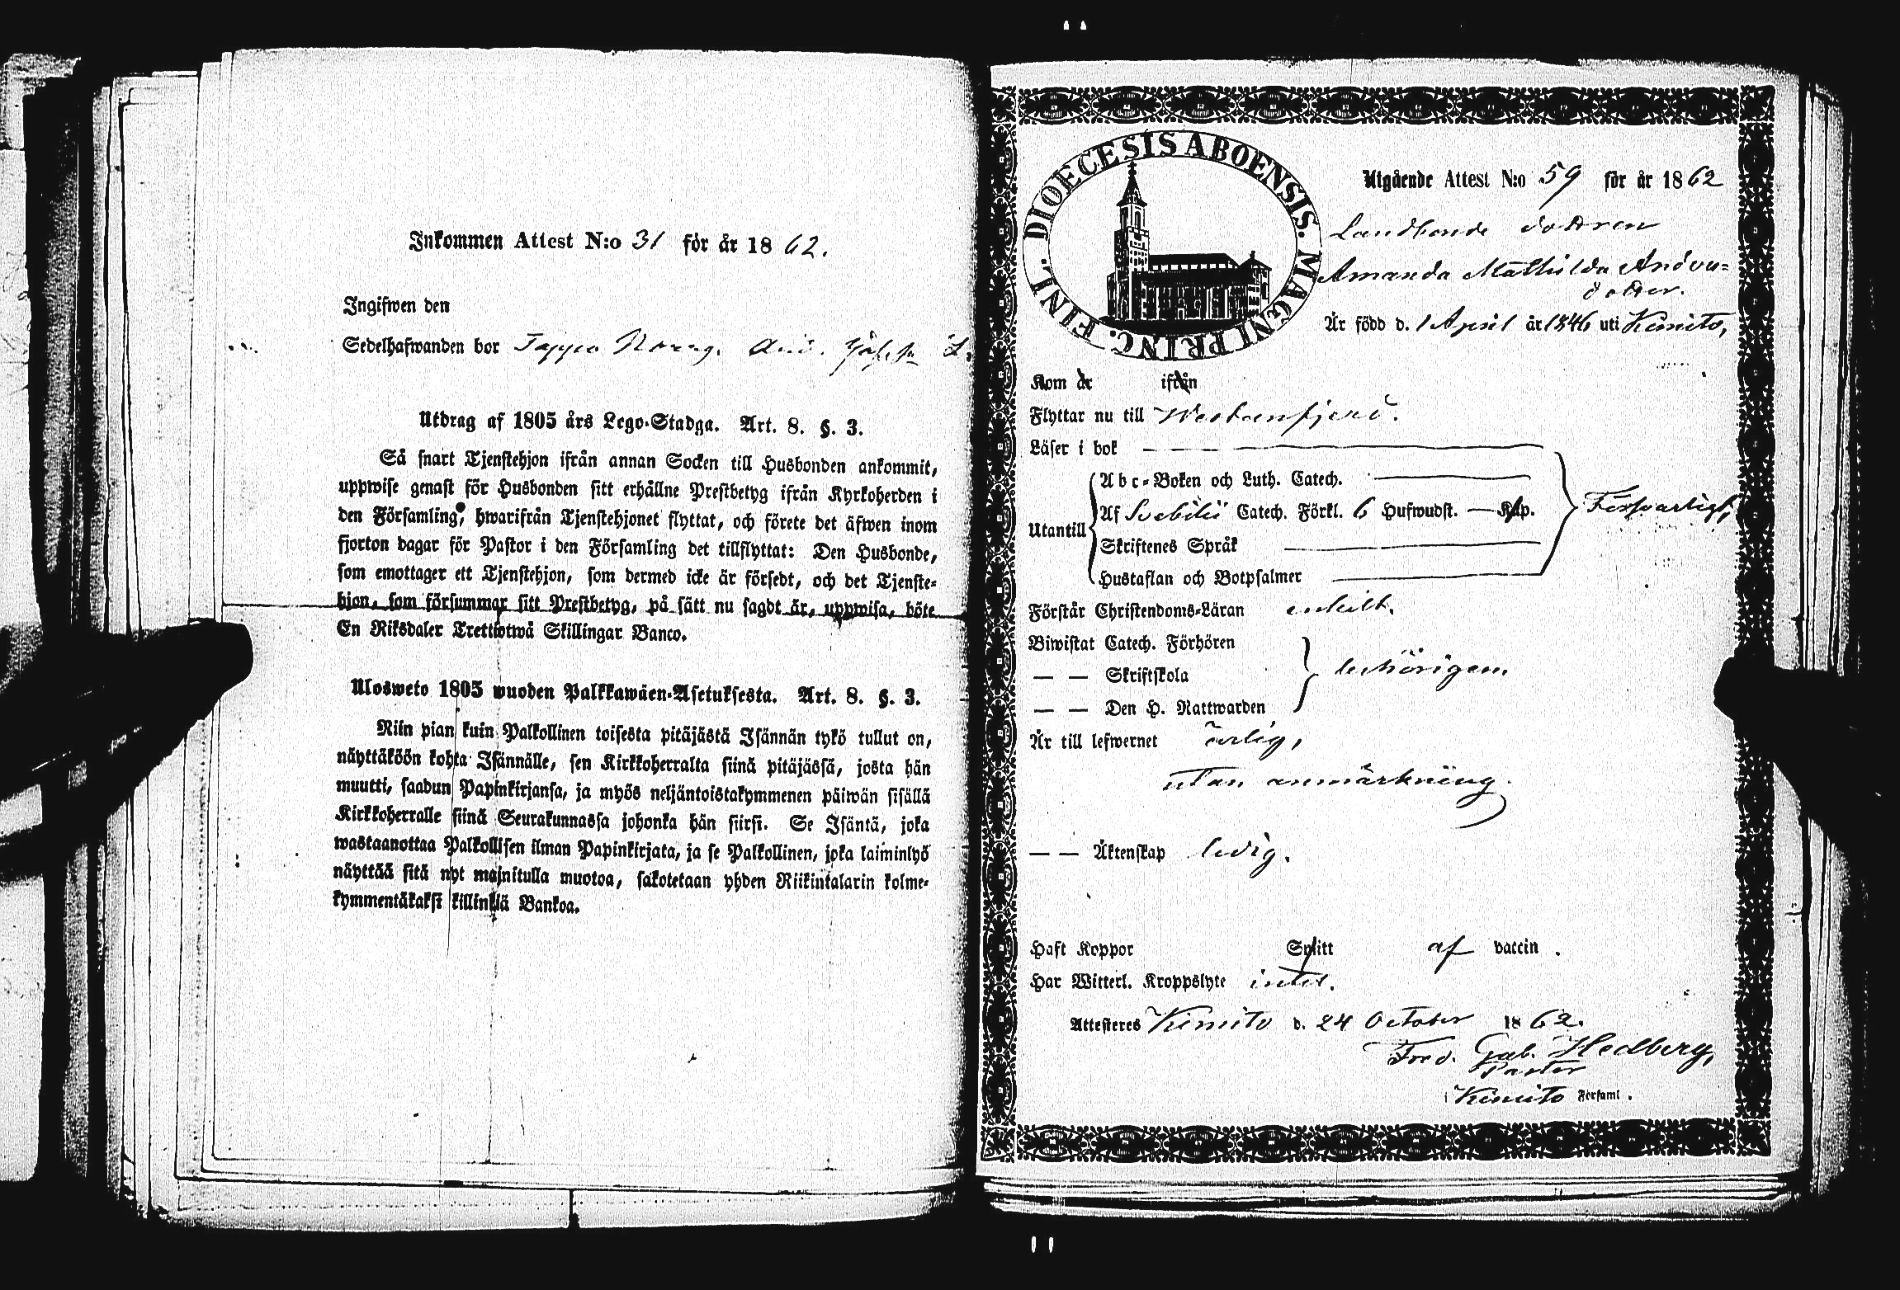 Inkommen Attest N:o 31 för år 1862.
Ingifwen den
Sedelhafwanden bor
Utdrag af 1805 års Lego-Stadga. Art. 8. §. 3.
Så snart Tjenstehjon ifrån annan Socken till Husbonden ankommit,
uppwise genast för Husbonden sitt erhållne Prestbetyg ifrån Kyrkoherden i
den Församling, hwarifrån Tjenstehjonet flyttat, och förete det äfwen inom
fjorton dagar för Pastor i den Församling det tillflyttat: Den Husbonde,
som emottager ett Tjenstehjon, som dermed icke är försedt, och det Tjenste-
hjon, som försummar sitt Prestbetyg, på sätt nu sagdt är, uppwisa, böte
En Riksdaler Trettiotwå Skillingar Banco.
Ulosweto 1805 wuoden Palkkawäen-Asetuksesta. Art. 8. §. 3.
Niin pian kuin Palkollinen toisesta pitäjästä Isännän tykö tullut on,
näyttäköön kohta Isännälle, sen Kirkkoherralta siinä pitäjässä, josta hän
muutti, saadun Papinkirjansa, ja myös neljäntoistakymmenen päiwän sisällä
Kirkkoherralle siinä Seurakunnassa johonka hän siirsi. Se Isäntä, joka
wastaanottaa Palkollisen ilman Papinkirjata, ja se Palkollinen, joka laiminlyö
näyttää sitä nyt mainitulla muotoa, sakotetaan yhden Riikintalarin kolme-
kymmentäkaksi killinkiä Bankoa.
DIOECESIS ABOENSIS. MAGNI PRINC. FINL.
Utgående Attest N:o 59 för år 1862
Landbonde dottren
Amanda Mathilda Anders=
dotter.
Är född d. 1 April år 1846 uti Kimito,
Kom år ifrån
Flyttar nu till Westanfjerd.
Läser i bok
Abc-Boken och Luth. Catech.
Utantill Af Svebilii Catech. Förkl. 6 Hufwudst. — Kap. Försvarligt,
Skriftenes Språk
Hustaflan och Botpsalmer
Förstår Christendoms-Läran enkelt.
Biwistat Catech. Förhören
— — Skriftskola behörigen.
— — Den H. Nattwarden
Är till lefwernet ärlig,
utan anmärkning.
— — Äktenskap ledig.
Haft Koppor Splitt af vaccin.
Har Witterl. Kroppslyte intet.
Attesteres Kimito d. 24 October 1862.
Fred. Gab. Hedberg,
Pastor
i Kimito Församl.